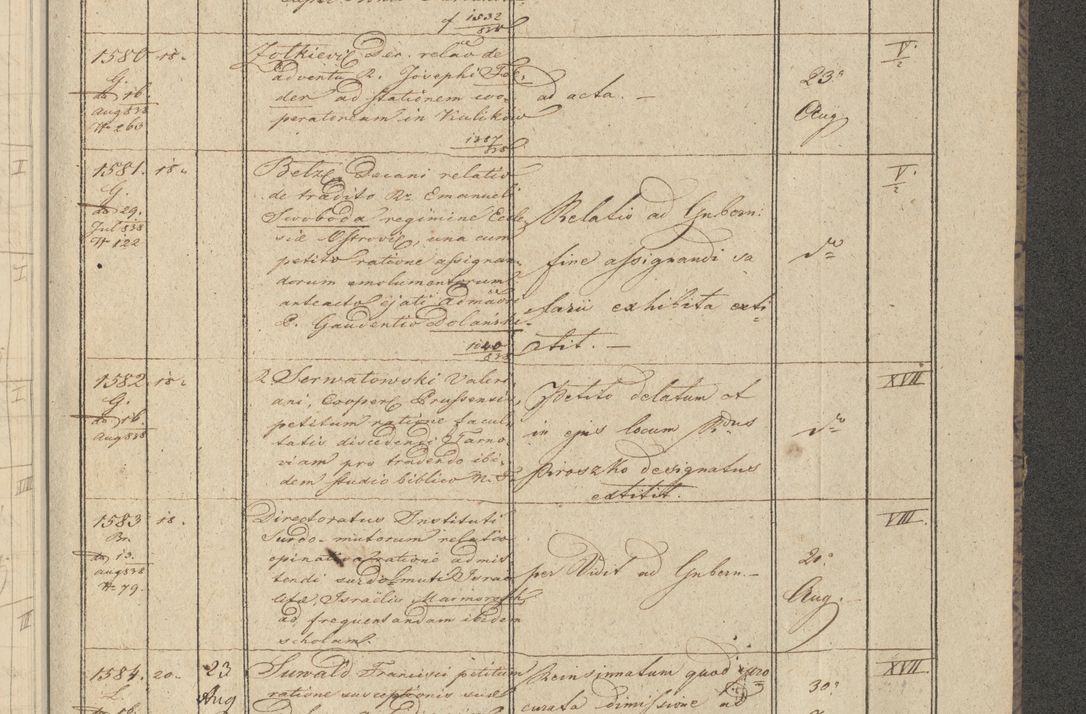 of 1532/838
1580 18.
G.
do 16.
Aug 838
N 263
Zolkiević Dec. relaō de
adventu R. Josephi Fe-
der ad stationem coo-
peratoream in Kulikow
1287/838
ad acta. —
23a
Aug
V./2
1581. 18.
G.
do 29.
Jul 838
N 122
Belzc. Decani relatio
de tradito Ro Emanueli
Swoboda regimine Eccle
siæ Ostrović, una cum
petito ratione assignan-
dorum emolumentorum
anteacto ejati admāōri
P. Gaudentio Dolański.
1040/838
Relatio ad Gubern:
fine assignandi sa
larii exhibita exti-
tit. —
do
V./2
1582 18.
G.
do 16.
Aug 838
2 Serwatowski Valeri-
ani, Cooper. Prussensis,
petitum ratione facul-
tatis discedendi Tarno-
viam pro tradendo ibi-
dem studio biblico N. F.
Petito delatum et
in ejus locum Rdus
Piroszko designatus
extitit.
do
XVII
1583 18.
Br.
do 13.
Aug 838
N 79.
Directoratus Instituti
Surdo-mutorum relatio
opinativa ratione admit
tendi surdomuti Israe
litæ, Israëlis Marmorosch
ad frequentandam ibidem
scholam.
per Vidit ad Gubern. —
20a
Aug.
VIII.
1584. 20.
L.
do 16.
23
Aug
Suwald Francisci petitum
ratione susceptionis sui
Reinsinuatum quod pro
curata dimissione ad
30a
XVII